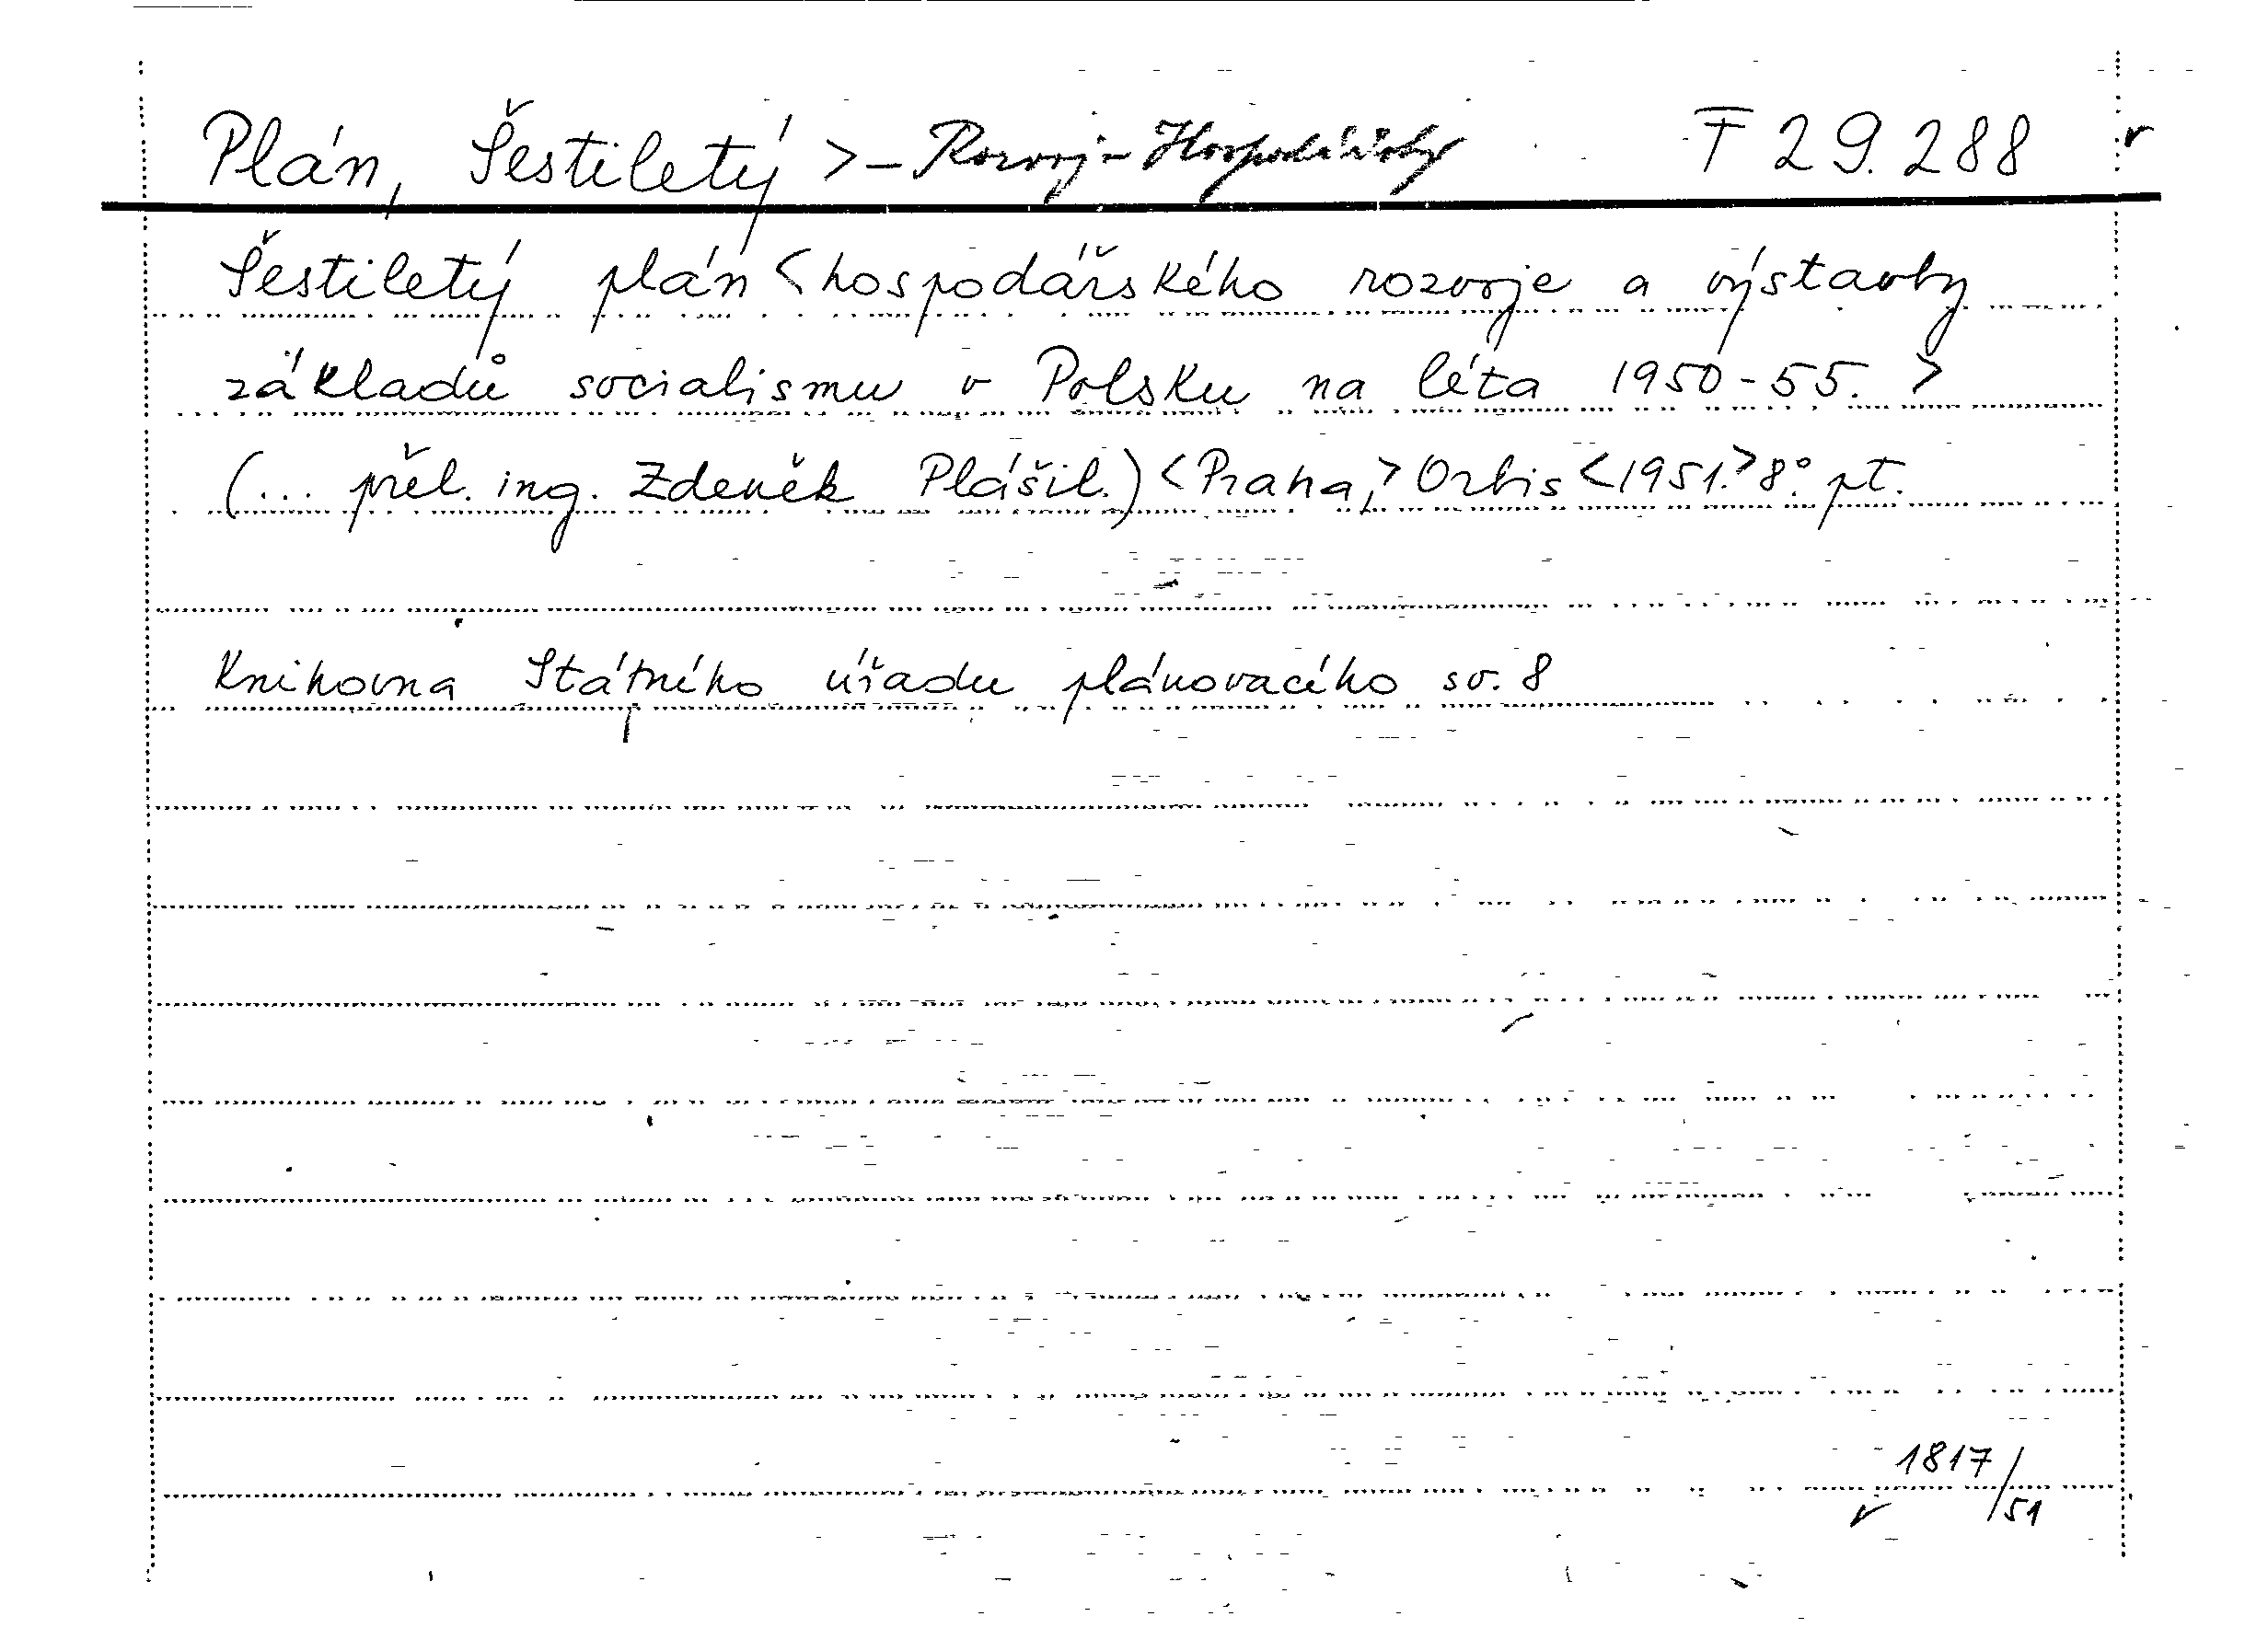 Plán, Šestiletý >- Rozvoj - Hospodářský F 29.288
Šestiletý plán <hospodářského rozvoje a výstavby
základů socialismu v Polsku na léta 1950-55.>
(... přel. ing. Zdeněk Plášil.) <Praha,> Orbis <1951.> 8° pt.
Knihovna Státního úřadu plánovacího sv. 8
1817/51